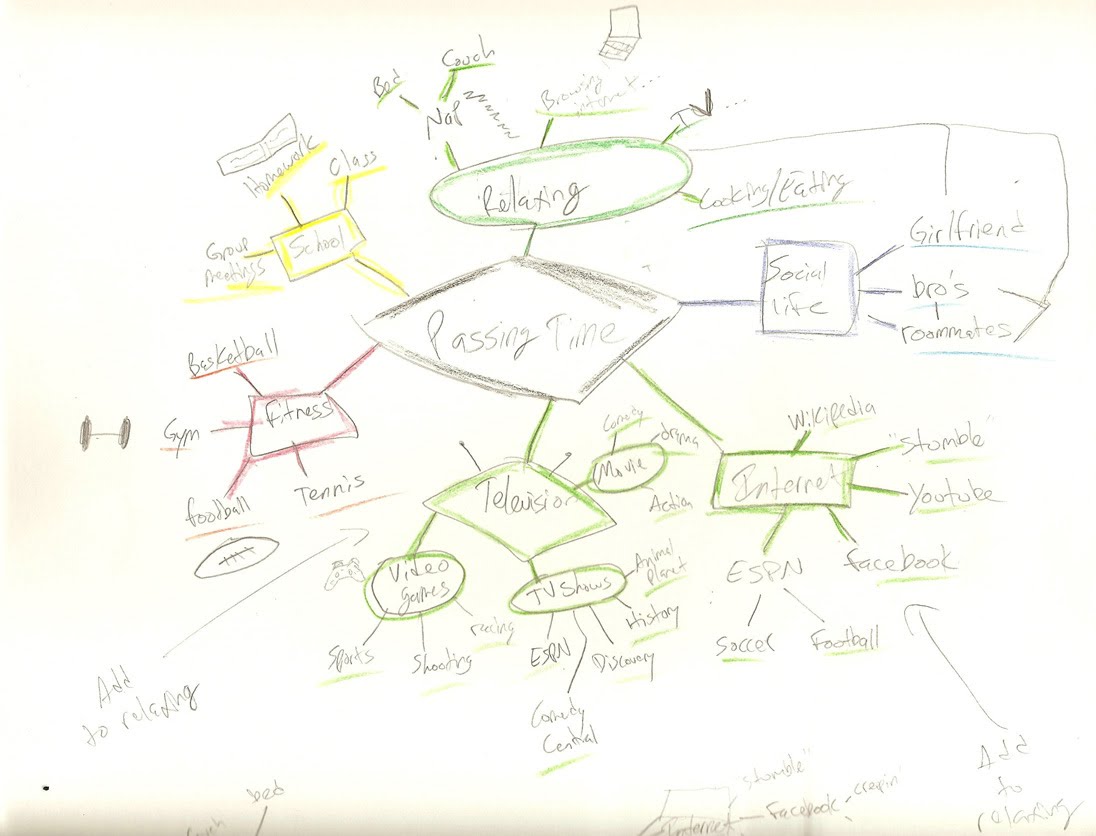 Couch
Bed
Nap
Browsing
internet...
TV ...
Relaxing
Cooking/Eating
Homework
Class
School
Group
meetings
Passing Time
Social
life
Girlfriend
bro's
roommates
Basketball
Fitness
Gym
football
Tennis
Television
Movie
Comedy
drama
Action
Video
games
Sports
Shooting
racing
TV Shows
Animal
Planet
History
Discovery
ESPN
Comedy
Central
Internet
Wikipedia
"stumble"
Youtube
facebook
ESPN
Soccer
Football
Add
to relaxing
Add
to
relaxing
bed
couch
Internet
stumble"
Facebook
creepin'